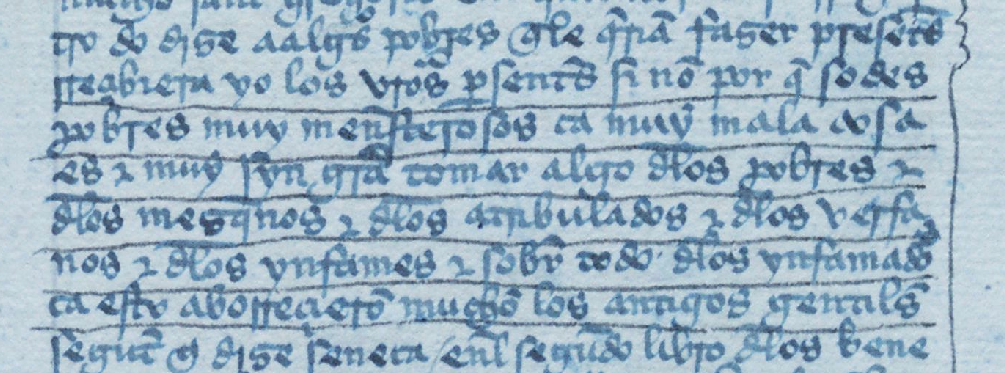 tro do dize a algũs pobres q̃ le q̃riã fazer presentes
rreabiera yo los vr̃os presentes si nõ por q̃ sodes
pobres muy menesterosos ca muy mala cosa
es & muy syn gr̃a tomar algo dlos pobres &
dlos mezq̃nos & dlos atribulados & dlos
nos & dlos ynfames & sobr̃ todo dlos ynfamados
ca esto aborrecierõ muchõ los antigos gentiles
segũt q̃ dize seneca enl segũdo libro dlos bene